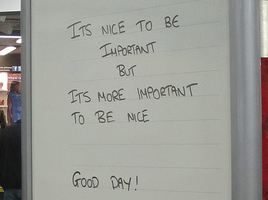 ITS NICE TO BE
IMPORTANT
BUT
ITS MORE IMPORTANT
TO BE NICE
GOOD DAY!